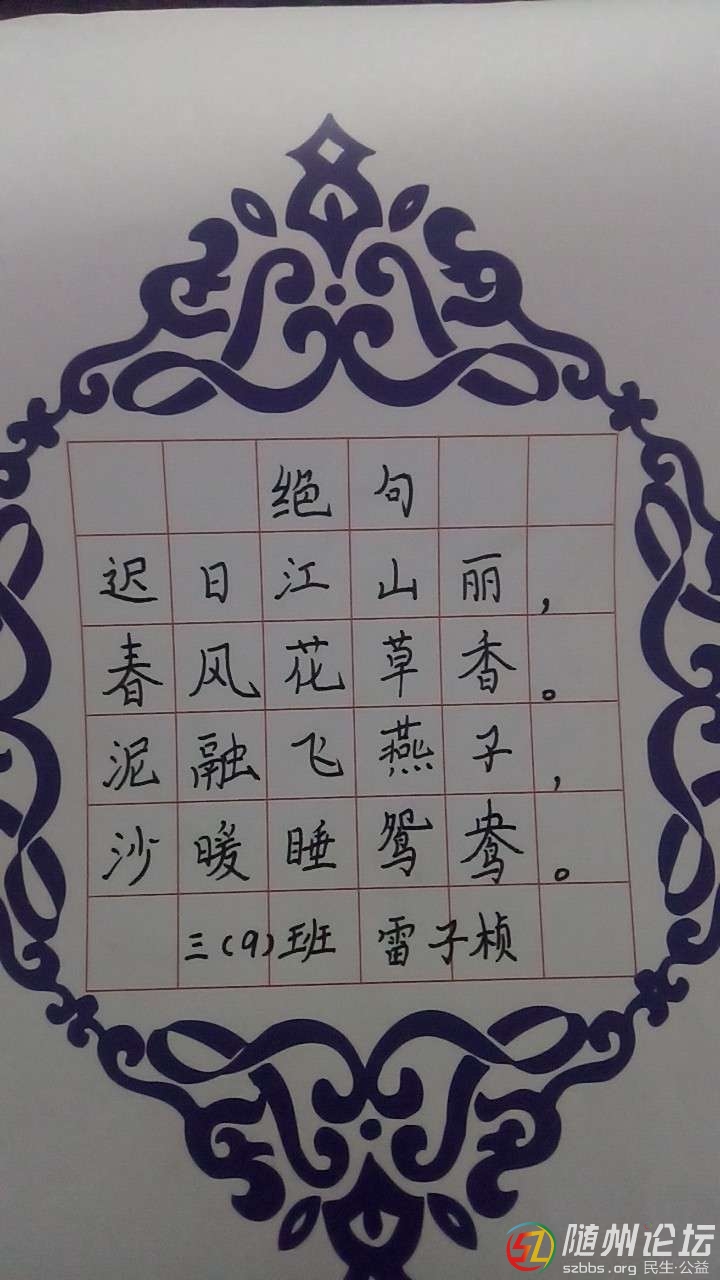 绝句
迟日江山丽，
春风花草香。
泥融飞燕子，
沙暖睡鸳鸯。
三(9)班 雷子桢
随州论坛
szbbs.org 民生·公益